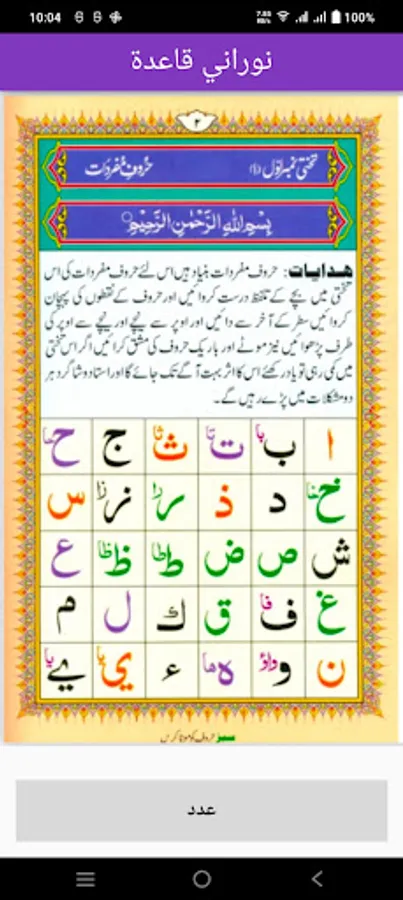 10:04 7.88 KB/S 100%
نوراني قاعدة
۲
تختی نمبر اوّل (۱) حروفِ مُفردات
بِسْمِ اللهِ الرَّحْمٰنِ الرَّحِيْمِ
ھدایات: حروف مفردات بنیاد ہیں اس لئے حروف مفردات کی اس
تختی میں بچے کے تلفظ درست کروائیں اور حروف کے نقطوں کی پہچان
کروائیں سطر کے آخر سے دائیں اور اوپر سے نیچے اور نیچے سے اوپر کی
طرف پڑھوائیں نیز موٹے اور باریک حروف کی مشق کرائیں اگر اس تختی
میں کمی رہی تو یاد رکھئے اس کا اثر بہت آگے تک جائے گا اور استاد و شاگرد ہر
دو مشکلات میں پڑے رہیں گے۔
ا ب با ت تا ث ثا ج ح حا
خ خا د ذ ر را ز زا س
ش ص ض ط طا ظ ظا ع
غ ف فا ق ك ل م
ن و واؤ ہ ھا ء ي یا ے یا
سبز حروف کو موٹا کریں
عدد